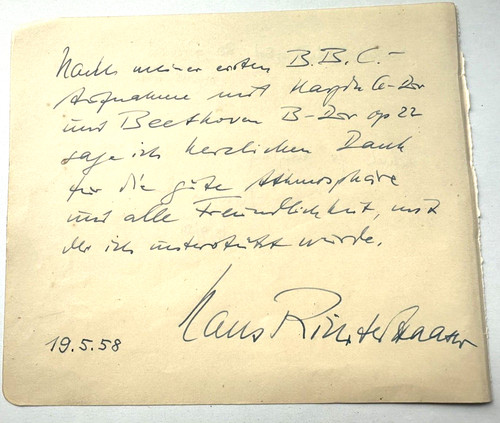 Nach meiner ersten B.B.C.-
Aufnahme mit Haydn C-Dur
und Beethoven B-Dur op 22
sage ich herzlichen Dank
für die gute Athmosphäre
und alle Freundlichkeit, mit
der ich unterstützt wurde.
Hans Richter-Haaser
19.5.58